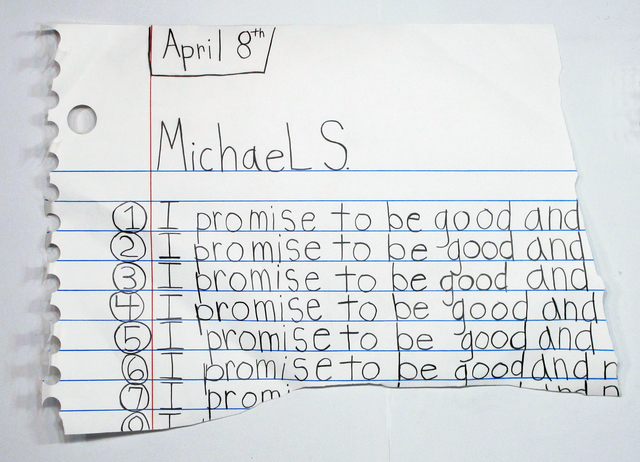 April 8th
MichaeL S.
① I promise to be good and
② I promise to be good and
③ I promise to be good and
④ I promise to be good and
⑤ I promise to be good and
⑥ I promise to be good and
⑦ I